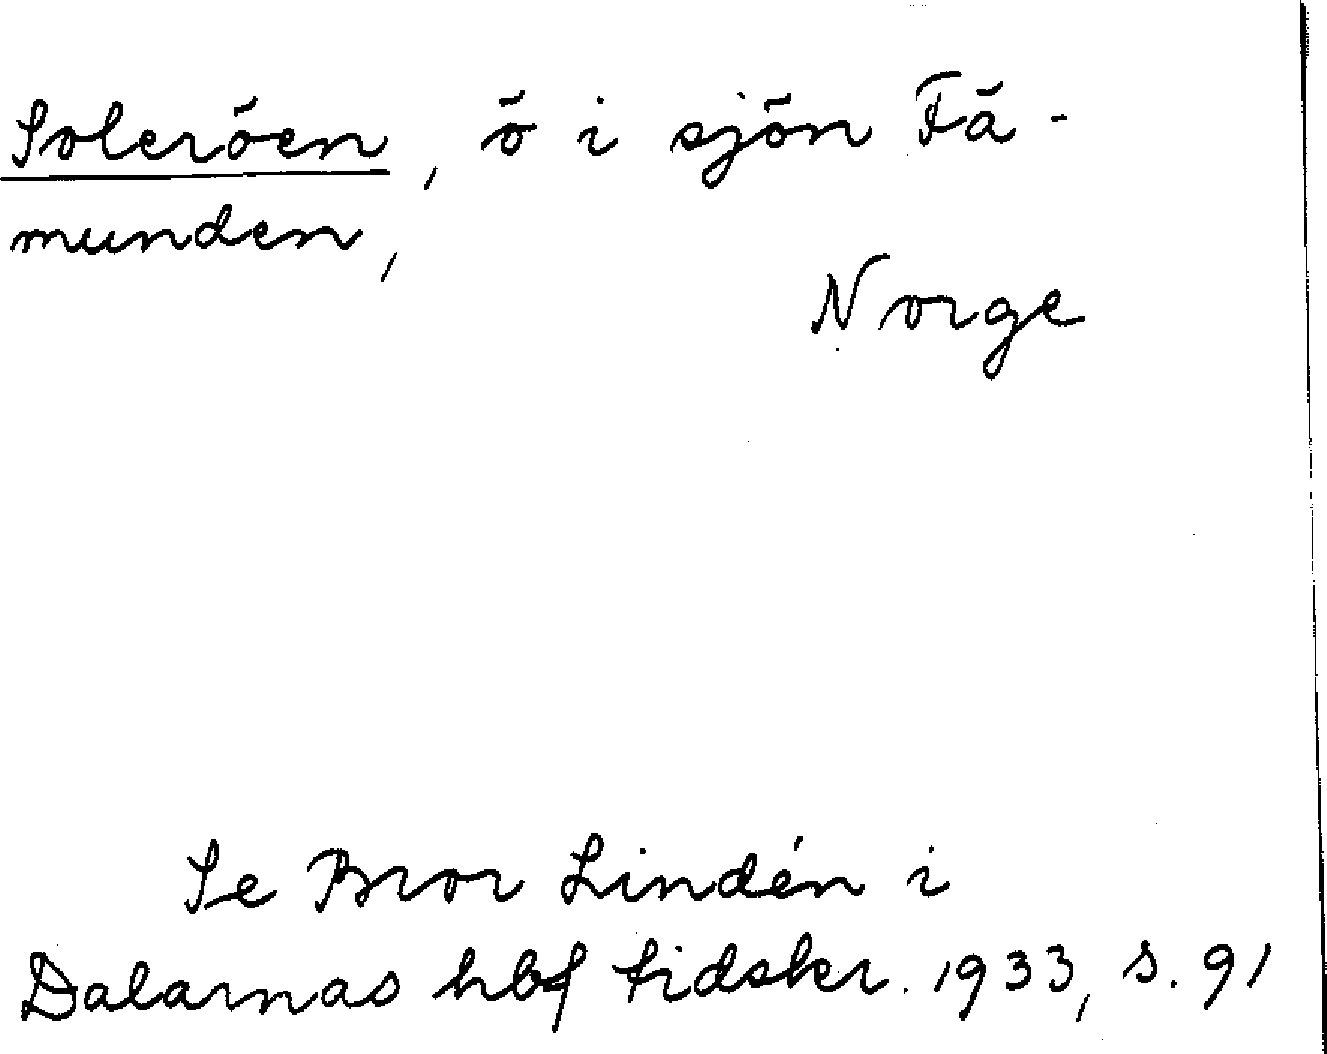 Soleröen, ö i sjön Fä-
munden,
Norge
Se Bror Lindén i
Dalarnas hbf tidskr. 1933, s. 91